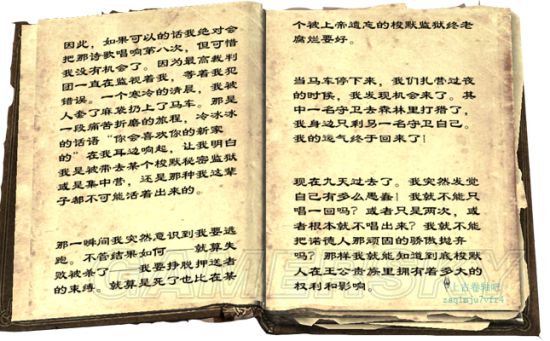 因此，如果可以的话我绝对会
把那诗歌唱响第八次，但可惜
我没有机会了。因为最高裁判
团一直在监视着我，等着我犯
错误。一个寒冷的清晨，我被
人套了麻袋扔上了马车。那是
一段痛苦折磨的旅程，冷冰冰
的话语“你会喜欢你的新家
的”在我耳边响起，让我明白
我是被带去某个梭默秘密监狱
或是集中营，还是那种我这辈
子都不可能活着出来的。
那一瞬间我突然意识到我要逃
跑。不管结果如何——就算失
败被杀了——我要挣脱押送者
的束缚，就算是死了也比在某
个被上帝遗忘的梭默监狱终老
腐烂要好。
当马车停下来，我们扎营过夜
的时候，我发现机会来了。其
中一名守卫去森林里打猎了，
我身边只剩另一名守卫自己。
我的运气终于回来了！
现在九天过去了。我突然发觉
自己有多么愚蠢！我就不能只
唱一回吗？或者只是两次，或
者根本就不唱出口？我就不能
把诺德人那顽固的骄傲抛弃
吗？那样我就能知道到底梭默
人在王公贵族里拥有着多大的
权利和影响。
GAMERSKY
上古卷轴吧
zaq1mju7vfr4